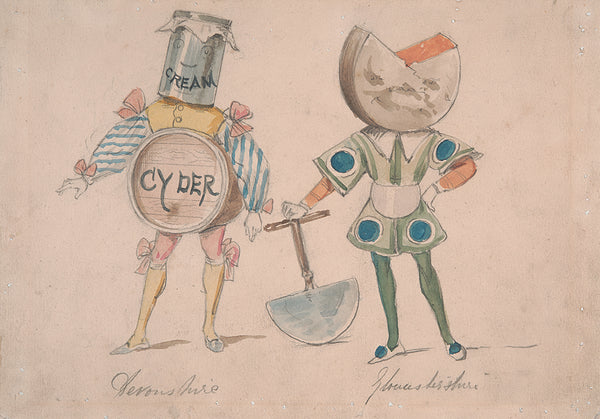 CREAM
CYDER
Devonshire
Gloucestershire